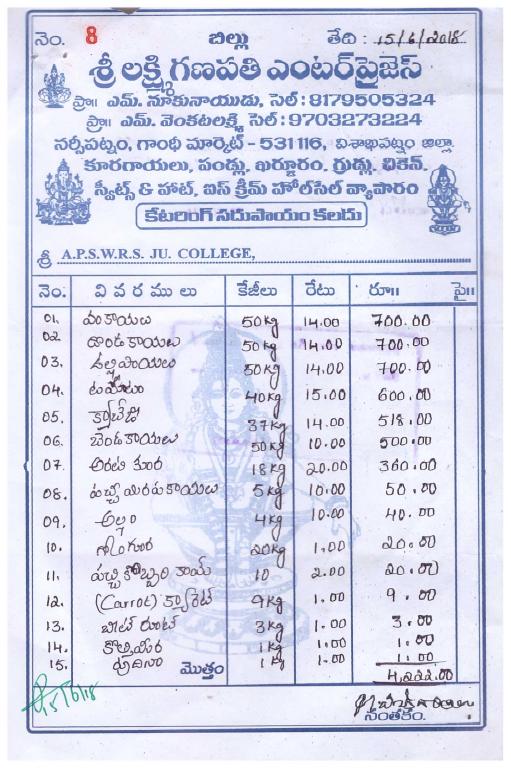 నెం. 8 బిల్లు తేది : 15/6/2018
శ్రీ లక్ష్మి గణపతి ఎంటర్‌ప్రైజెస్
ప్రొ॥ ఎమ్. నూకునాయుడు, సెల్ : 8179505324
ప్రొ॥ ఎమ్. వెంకటలక్ష్మి, సెల్ : 9703273224
నర్సీపట్నం, గాంధీ మార్కెట్ - 531116, విశాఖపట్నం జిల్లా
కూరగాయలు, పండ్లు, ఖర్జూరం, గ్రుడ్లు, చికెన్,
స్వీట్స్ & హాట్, ఐస్ క్రీమ్ హోల్‌సేల్ వ్యాపారం
కేటరింగ్ సదుపాయం కలదు
శ్రీ A.P.S.W.R.S. JU. COLLEGE,
నెం. వివరములు కేజీలు రేటు రూ॥ పై॥
01. వంకాయలు 50kg 14.00 700.00
02 దొండకాయలు 50kg 14.00 700.00
03. ఉల్లిపాయలు 50kg 14.00 700.00
04. టమోటా 40kg 15.00 600.00
05. క్యాబేజి 37kg 14.00 518.00
06. బెండకాయలు 50kg 10.00 500.00
07. అరటి కూర 18kg 20.00 360.00
08. పచ్చిమిరపకాయలు 5kg 10.00 50.00
09. అల్లం 4kg 10.00 40.00
10. గోంగూర 20kg 1.00 20.00
11. పచ్చి కొబ్బరి కాయ్ 10 2.00 20.00
12. (Carrot) క్యారెట్ 9kg 1.00 9.00
13. బీట్ రూట్ 3kg 1.00 3.00
14. కొత్తిమీర 1kg 1.00 1.00
15. పుదీనా 1kg 1.00 1.00
మొత్తం 4,222.00
సంతకం.